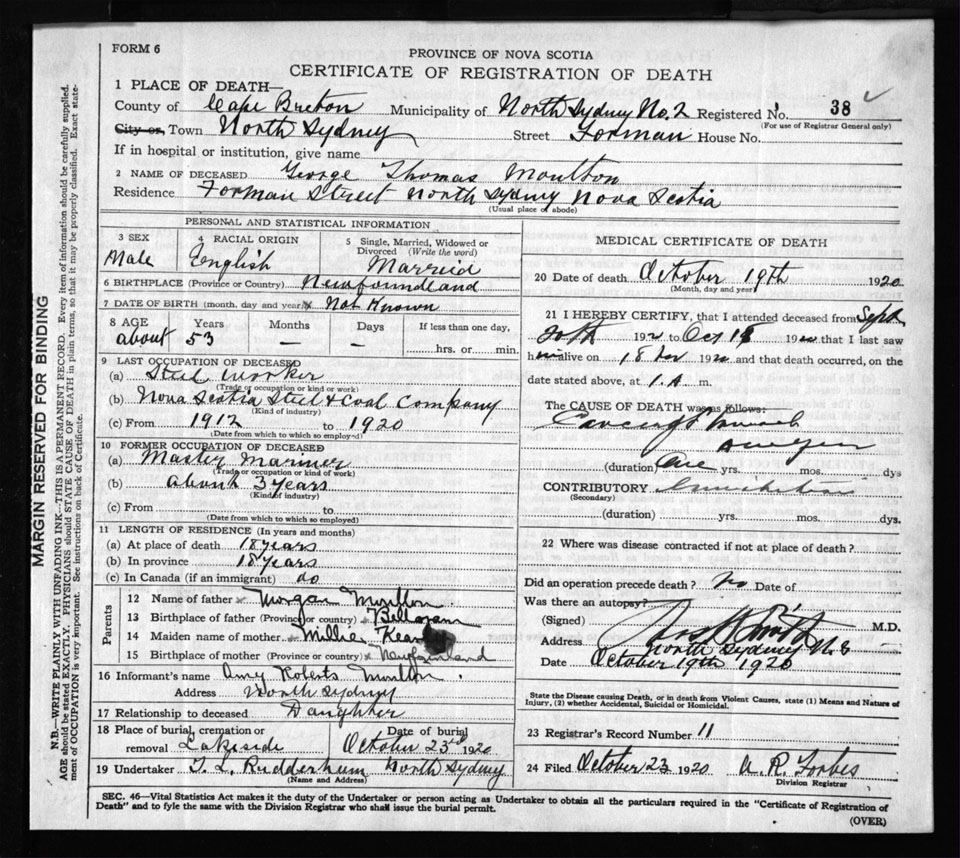 FORM 6
PROVINCE OF NOVA SCOTIA
CERTIFICATE OF REGISTRATION OF DEATH
1 PLACE OF DEATH—
County of Cape Breton Municipality of North Sydney No. 2 Registered No. 38
(For use of Registrar General only)
City or Town North Sydney Street Forman House No.
If in hospital or institution, give name
2 NAME OF DECEASED George Thomas Moulton
Residence Forman Street North Sydney Nova Scotia
(Usual place of abode)
PERSONAL AND STATISTICAL INFORMATION
3 SEX Male
4 RACIAL ORIGIN English
5 Single, Married, Widowed or Divorced (Write the word) Married
6 BIRTHPLACE (Province or Country) Newfoundland
7 DATE OF BIRTH (month, day and year) Not Known
8 AGE Years Months Days If less than one day,
about 53 — – hrs. or min.
9 LAST OCCUPATION OF DECEASED
(a) Steel Worker
(Trade or occupation or kind or work)
(b) Nova Scotia Steel & Coal Company
(Kind of industry)
(c) From 1912 to 1920
(Date from which to which so employed)
10 FORMER OCCUPATION OF DECEASED
(a) Master Mariner
(Trade or occupation or kind of work)
(b) about 3 years
(Kind of industry)
(c) From to
(Date from which to which so employed)
11 LENGTH OF RESIDENCE (In years and months)
(a) At place of death 18 years
(b) In province 18 years
(c) In Canada (if an immigrant) do
Parents
12 Name of father Morgan Moulton
13 Birthplace of father (Province or country)
14 Maiden name of mother Millie
15 Birthplace of mother (Province or country) Newfoundland
16 Informant's name Amy Roberts Moulton
Address North Sydney
17 Relationship to deceased Daughter
18 Place of burial, cremation or removal Lakeside
Date of burial October 23rd 1920
19 Undertaker T. L. Rudderham North Sydney
(Name and Address)
MEDICAL CERTIFICATE OF DEATH
20 Date of death October 19th 1920
(Month, day and year)
21 I HEREBY CERTIFY, that I attended deceased from Sept
192 to Oct 18 19 that I last saw
h alive on 18 192 and that death occurred, on the
date stated above, at 1. A. m.
The CAUSE OF DEATH was as follows:
(duration) One yrs. mos. dys
CONTRIBUTORY
(Secondary)
(duration) yrs. mos. dys.
22 Where was disease contracted if not at place of death?
Did an operation precede death? No Date of
Was there an autopsy?
(Signed) M.D.
Address North Sydney N.S
Date October 19th 1920
State the Disease causing Death, or in death from Violent Causes, state (1) Means and Nature of Injury, (2) whether Accidental, Suicidal or Homicidal.
23 Registrar's Record Number 11
24 Filed October 23 1920 A. R. Forbes
Division Registrar
SEC. 46—Vital Statistics Act makes it the duty of the Undertaker or person acting as Undertaker to obtain all the particulars required in the "Certificate of Registration of
Death" and to fyle the same with the Division Registrar who shall issue the burial permit.
(OVER)
MARGIN RESERVED FOR BINDING
N.B.—WRITE PLAINLY WITH UNFADING INK—THIS IS A PERMANENT RECORD. Every item of information should be carefully supplied.
AGE should be stated EXACTLY. PHYSICIANS should STATE CAUSE OF DEATH in plain terms, so that it may be properly classified. Exact statement of OCCUPATION is very important. See instructions on back of Certificate.